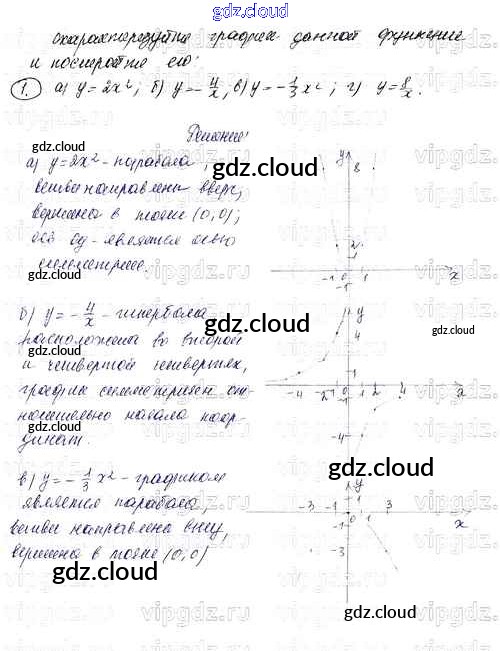 gdz.cloud
охарактеризуйте график данной функции
и постройте его:
1. а) y = 2x²; б) y = -4/x; в) y = -1/3 x²; г) y = 8/x.
gdz.cloud
Решение:
а) y = 2x² - парабола,
ветви направлены вверх,
вершина в точке (0,0);
ось оу - является осью
симметрии.
gdz.cloud
y
8
2
1
-1
1
x
gdz.cloud
б) y = -4/x - гипербола
расположена во второй
и четвертой четвертях,
график симметричен от-
носительно начала коор-
динат.
gdz.cloud
y
4
1
-4 -2 -1 1 2 4
-1
-4
gdz.cloud
в) y = -1/3 x² - графиком
является парабола,
ветви направлены вниз,
вершина в точке (0,0)
gdz.cloud
y
-3 -1 1 3
-1
-3
x
gdz.cloud
vipgdz.ru